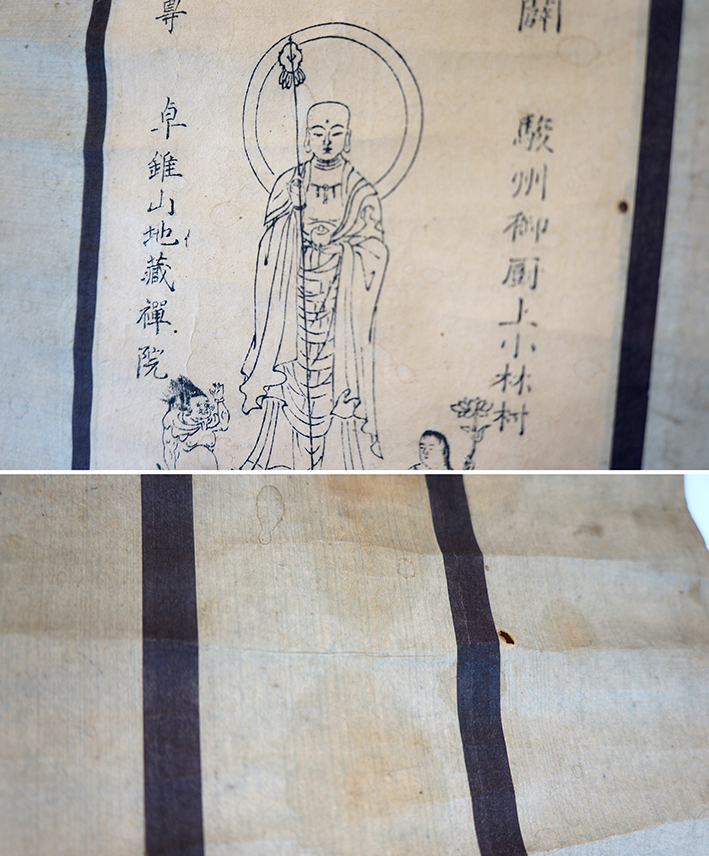 關
駿州御厨上小林村
尊
卓錐山地藏禪院